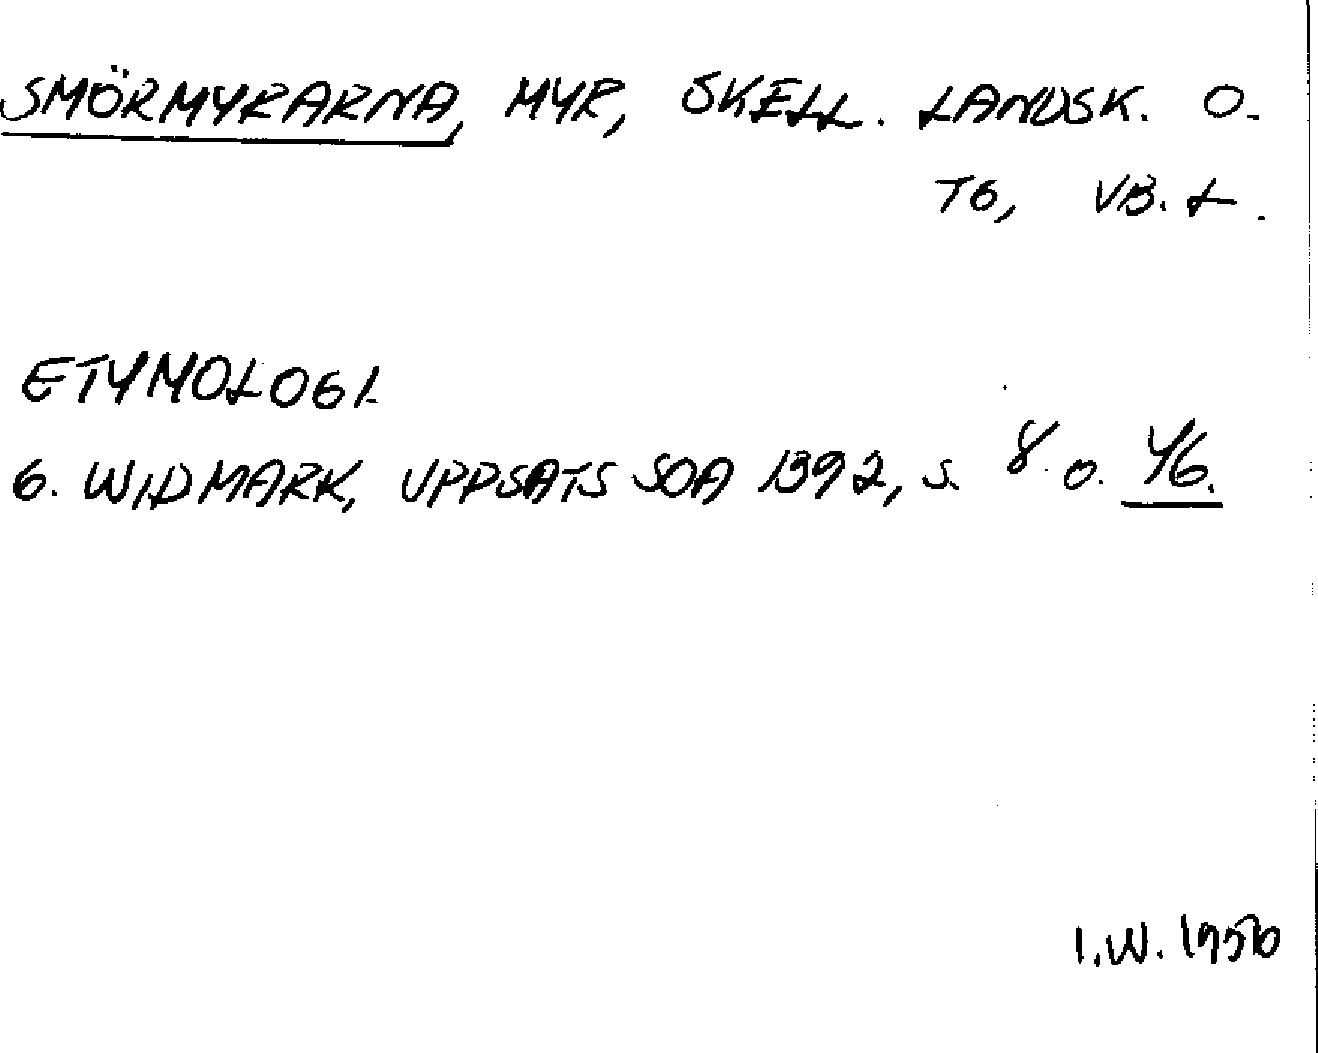 SMÖRMYRARNA, MYR, SKELL. LANDSK. O.
TG, VB. L.
ETYMOLOGI.
G. WIDMARK, UPPSATS SOA 1392, S. 8 o. 46.
I.W. 1956